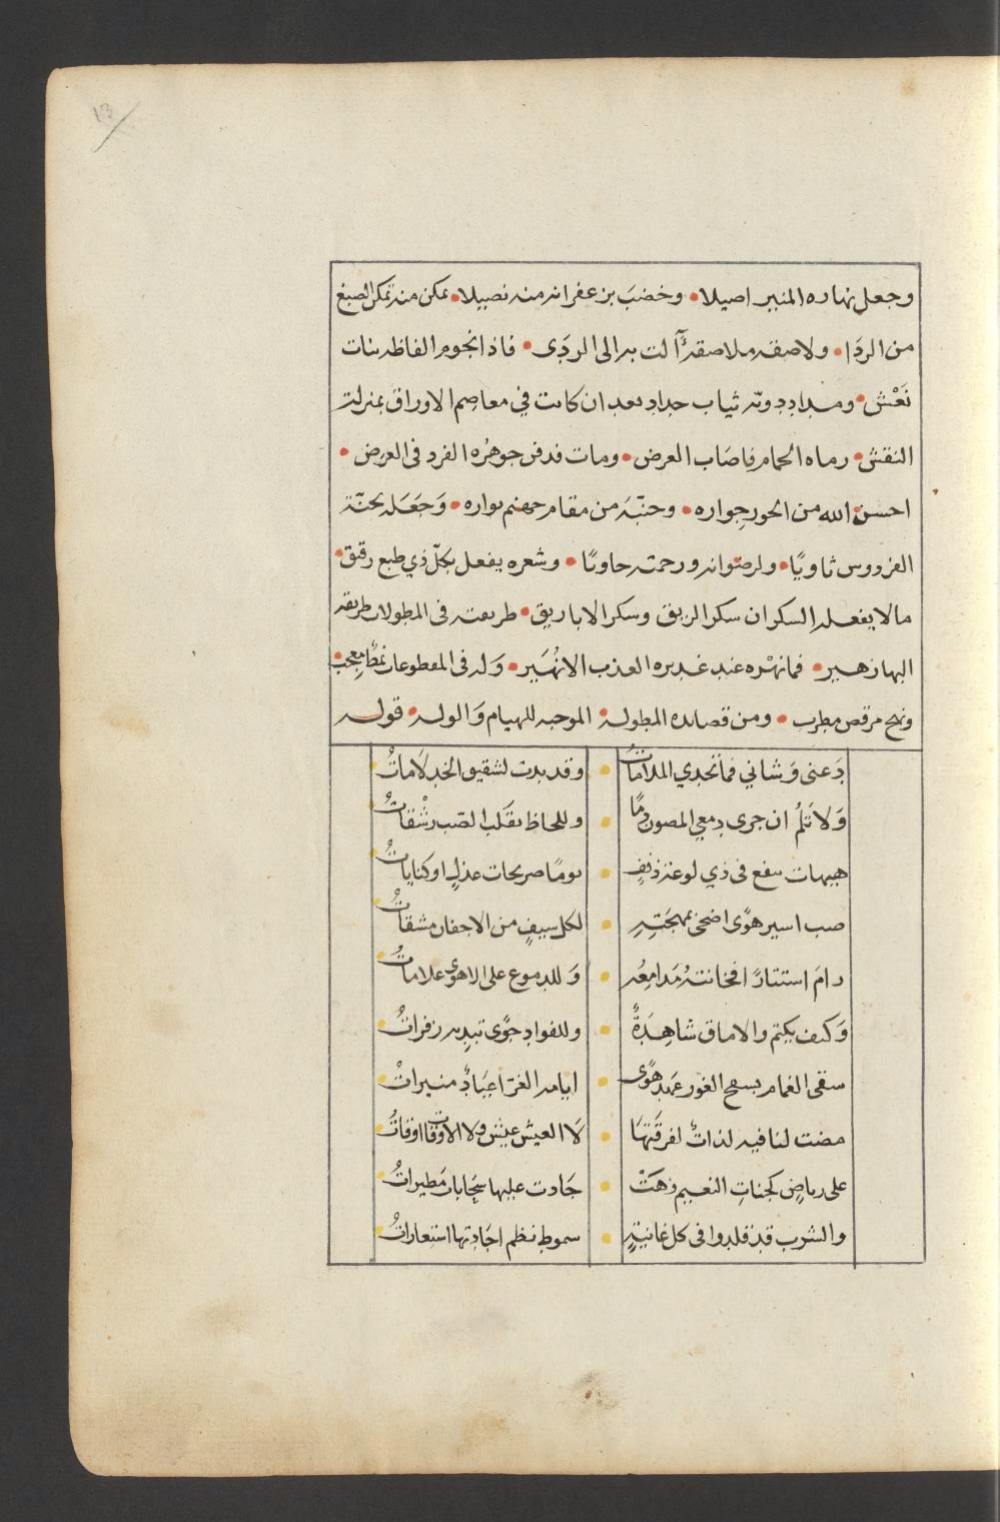 13
وجعل نهاره المنير اصيلا • وخضبَ بزعفرانه منه نصيلا • تمكن منه تمكن الصبغ
من الردَا • ولاصقه ملاصقةً آلت به الى الردَى • فاذا نجوم الفاظه بنات
نَعْش • ومداد دويّه ثياب حداد بعد ان كانت في معاصم الاوراق بمنزلة
النقش • رماه الحمام فاصَاب العرض • ومات فدفن جوهُره الفرد فى العرض •
احسن الله من الحور جواره • وجنّبَه من مقام جهنم بواره • وَجَعَله بجنّة
الفردوس ثاويًا • ولرضوانه ورحمته حاويًا • وشعره يفعل بكلّ ذي طبع رقيق •
مالا يفعله السكران سكر الريق وسكر الاباريق • طريقته فى المطولات طريقة
البها زهير • فما نهْره عند غديره العذب الا نُهَير • وَله فى المقطوعات نمطٌ معجب •
ونهج مرقص مطرب • ومن قصائده المطولة • الموجبه للهيام وَالوله • قوله
دَعنى وَشاني فما تجدي الملامَاتُ • وقد بدت لشقيق الخد لَاماتُ
وَلَا تَلُمْ ان جرى دمعي المصون دمًا • وللحاظ بقَلب الصّب رشْقاتُ
هيهات ينفع فى ذي لوعة دنِفٍ • يومًا صريحات عذلٍ او كناياتُ
صب اسير هوًى اضحى بمهجَتِهِ • لكل سيفٍ من الاجفان مشقاتُ
رامَ استتارًا فخانتهُ مَدامِعُه • وَللدموع على الاهوى علاماتُ
وَكيف يكتم والاماق شاهِدَةٌ • وللفوادِ جوًى تبديه زفراتُ
سقى الغمام بسفح الغور عهد هوًى • ايامه الغرّ اعيَادٌ منيراتْ
مضت لنا فيه لذاتٌ لفرقَتهَا • لَا العيش عيش ولا الاوقات اوقاتُ
على رياضٍ كجناتِ النعيم زهَتْ • جَادت عليها سَحَابات مَطيراتُ
والشرب قد قلدوا فى كل غانيةٍ • سموط نظم اجَادتها استعاراتُ